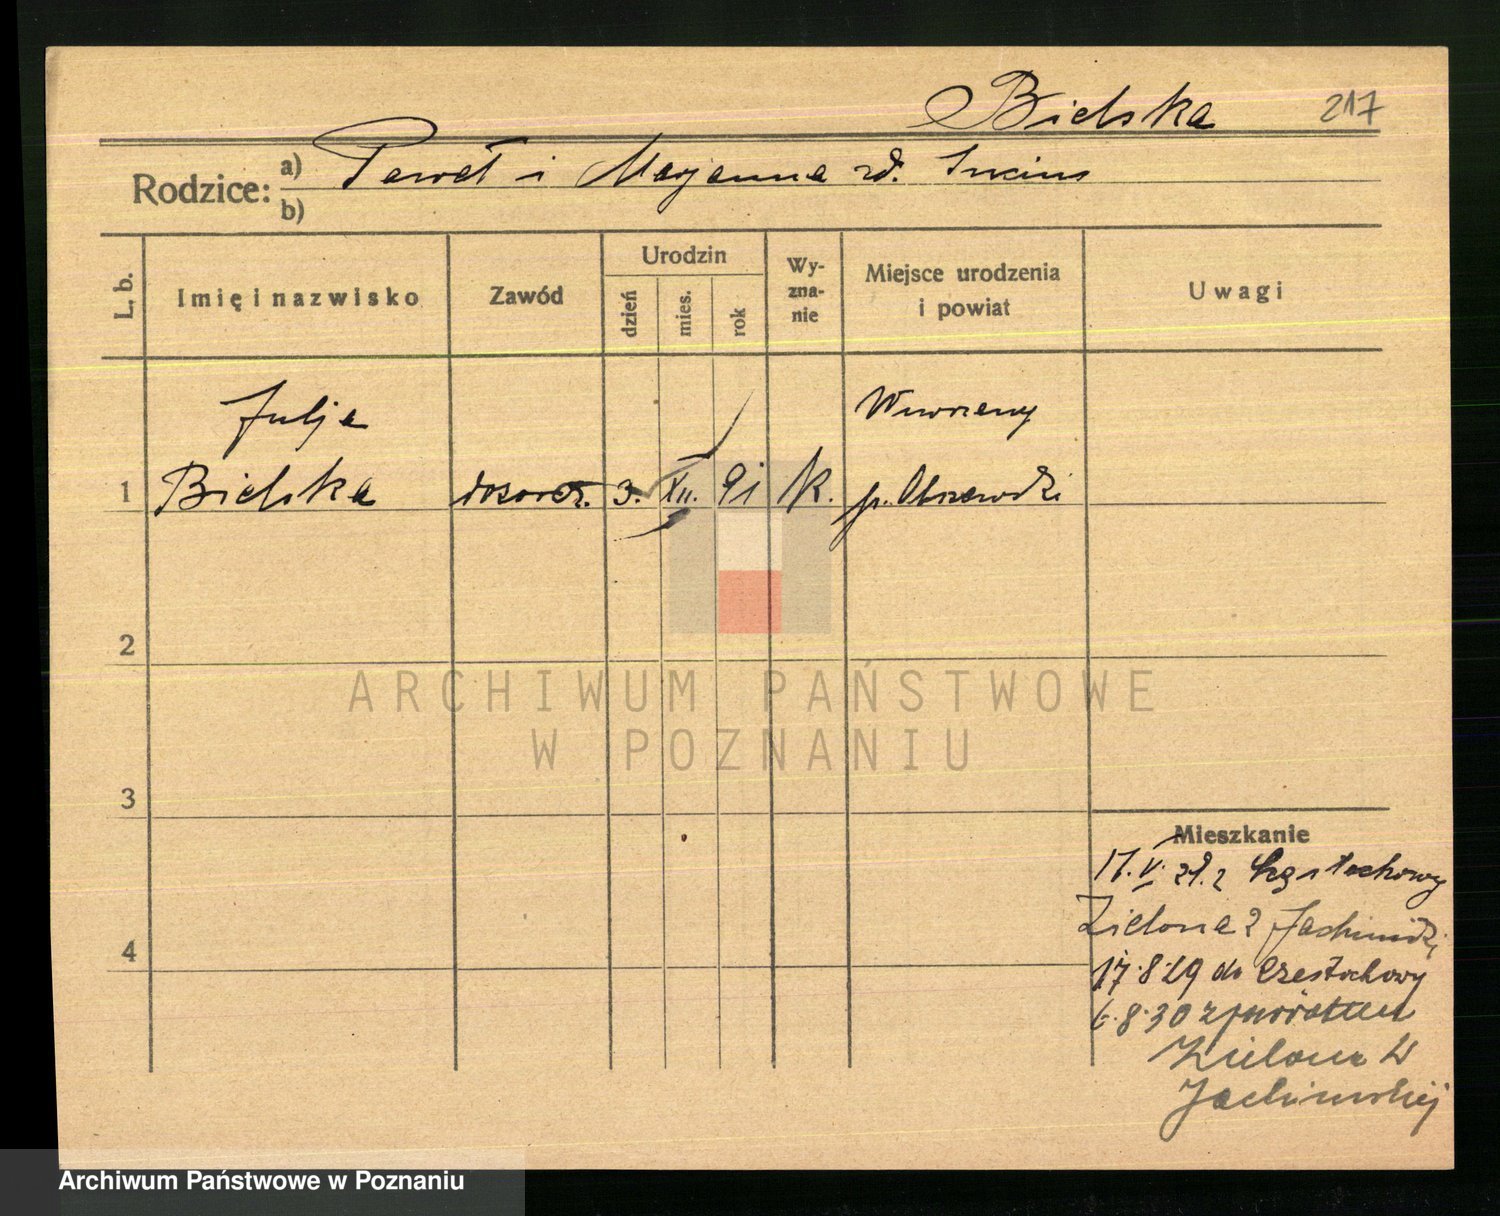 Bielska 217
Rodzice: a) Paweł i Marjanna zd.
b)
L. b. Imię i nazwisko Zawód Urodzin dzień mies. rok Wy-zna-nie Miejsce urodzenia i powiat Uwagi
Julja
1 Bielska 3. XII. 91 k. p.
2
ARCHIWUM PAŃSTWOWE
W POZNANIU
3
4
Mieszkanie
17.V. 29. z Częstochowy
Zielona 2
17.8.29 do Częstochowy
6.8.30 z powrotem
Zielona
Archiwum Państwowe w Poznaniu